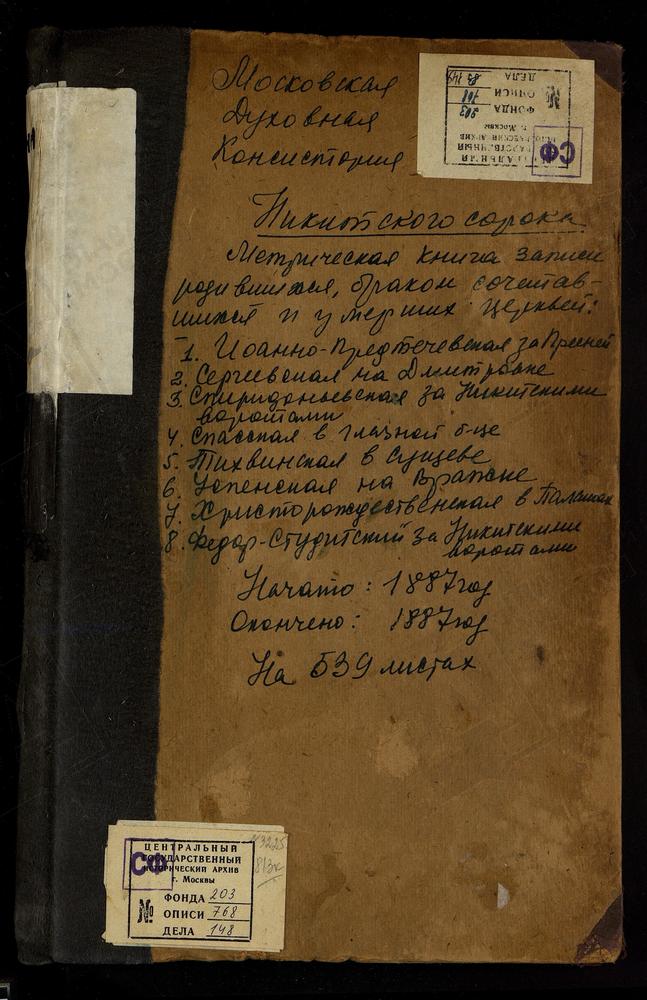 Московская
Духовная
Консистория
Никитского сорока
Метрическая книга записи
родившихся, браком сочетав-
шихся и умерших церквей:
1. Иоанно-Предтечевская за Пресней
2. Сергиевская на Дмитровке
3. Спиридоньевская за Никитскими
воротами
4. Спасская в глазной б-це
5. Тихвинская в Сущеве
6. Успенская на Вражке
7. Христорождественская в Палашах
8. Федор-Студитский за Никитскими
воротами
Начато: 1887 год
Окончено: 1887 год
На 539 листах
ЦЕНТРАЛЬНЫЙ
ГОСУДАРСТВЕННЫЙ
ИСТОРИЧЕСКИЙ АРХИВ
г. Москвы
СФ
№
ФОНДА 203
ОПИСИ 768
ДЕЛА 148
СФ
г. Москвы
№
ФОНДА 203
ОПИСИ
ДЕЛА